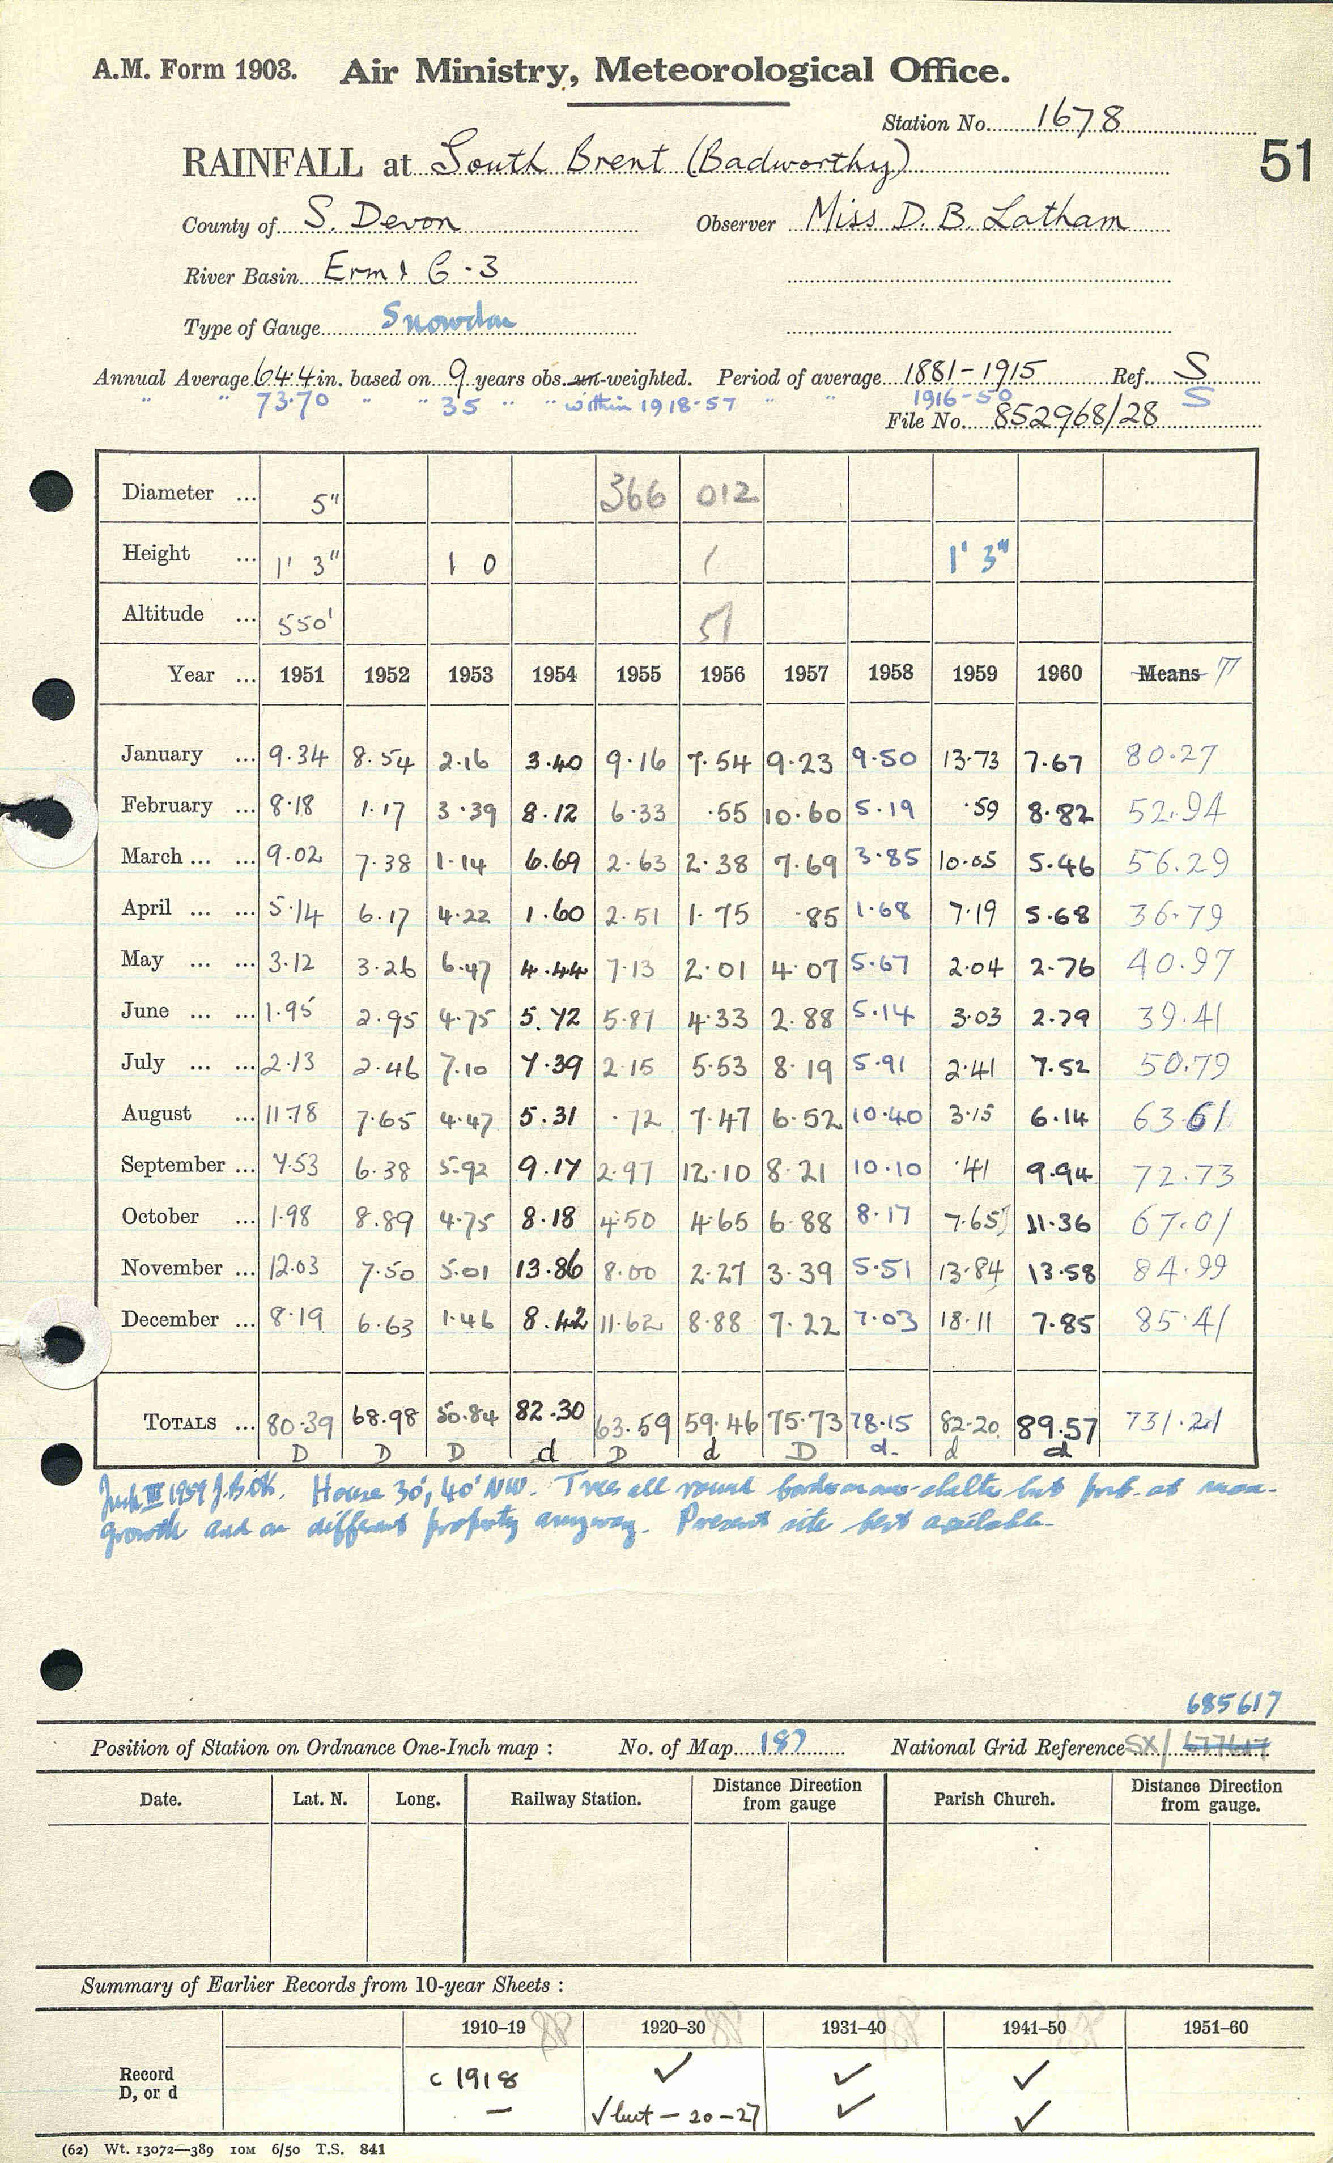 A.M. Form 1903. Air Ministry, Meteorological Office.
Station No. 1678
RAINFALL at South Brent (Badworthy) 51
County of S. Devon Observer Miss D. B. Latham
River Basin Erme 6.3
Type of Gauge Snowdon
Annual Average 64.4 in. based on 9 years obs. un-weighted. Period of average 1881-1915 Ref. S
" " 73.70 " " 35 " " within 1918-57 " " 1916-50 S
File No. 852968/28
Diameter ... 5" 366 012
Height ... 1' 3" 1 0 1 1' 3"
Altitude ... 550' 51
Year ... 1951 1952 1953 1954 1955 1956 1957 1958 1959 1960 Means T
January ... 9.34 8.54 2.16 3.40 9.16 7.54 9.23 9.50 13.73 7.67 80.27
February ... 8.18 1.17 3.39 8.12 6.33 .55 10.60 5.19 .59 8.82 52.94
March ... ... 9.02 7.38 1.14 6.69 2.63 2.38 7.69 3.85 10.05 5.46 56.29
April ... ... 5.14 6.17 4.22 1.60 2.51 1.75 .85 1.68 7.19 5.68 36.79
May ... ... 3.12 3.26 6.47 4.44 7.13 2.01 4.07 5.67 2.04 2.76 40.97
June ... ... 1.95 2.95 4.75 5.72 5.87 4.33 2.88 5.14 3.03 2.79 39.41
July ... ... 2.13 2.46 7.10 7.39 2.15 5.53 8.19 5.91 2.41 7.52 50.79
August ... 11.78 7.65 4.47 5.31 .72 7.47 6.52 10.40 3.15 6.14 63.61
September ... 7.53 6.38 5.92 9.17 2.97 12.10 8.21 10.10 .41 9.94 72.73
October ... 1.98 8.89 4.75 8.18 4.50 4.65 6.88 8.17 7.65 11.36 67.01
November ... 12.03 7.50 5.01 13.86 8.00 2.27 3.39 5.51 13.84 13.58 84.99
December ... 8.19 6.63 1.46 8.42 11.62 8.88 7.22 7.03 18.11 7.85 85.41
TOTALS ... 80.39 68.98 50.84 82.30 63.59 59.46 75.73 78.15 82.20 89.57 731.21
D D D d D d D d. d d
III 1959 House 30', 40' NW. Trees all round but at
growth and on different property anyway. Present site best available.
685617
Position of Station on Ordnance One-Inch map : No. of Map 187 National Grid Reference SX/ 677617
Date. Lat. N. Long. Railway Station. Distance Direction from gauge Parish Church. Distance Direction from gauge.
Summary of Earlier Records from 10-year Sheets :
1910–19 1920–30 1931–40 1941–50 1951–60
Record c 1918 ✓ ✓ ✓
D, or d — ✓ but – 20 – 27 ✓ ✓
(62) Wt. 13072—389 10M 6/50 T.S. 841